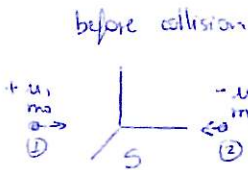 before collision
+ u, - u
m₀ m
① S ②